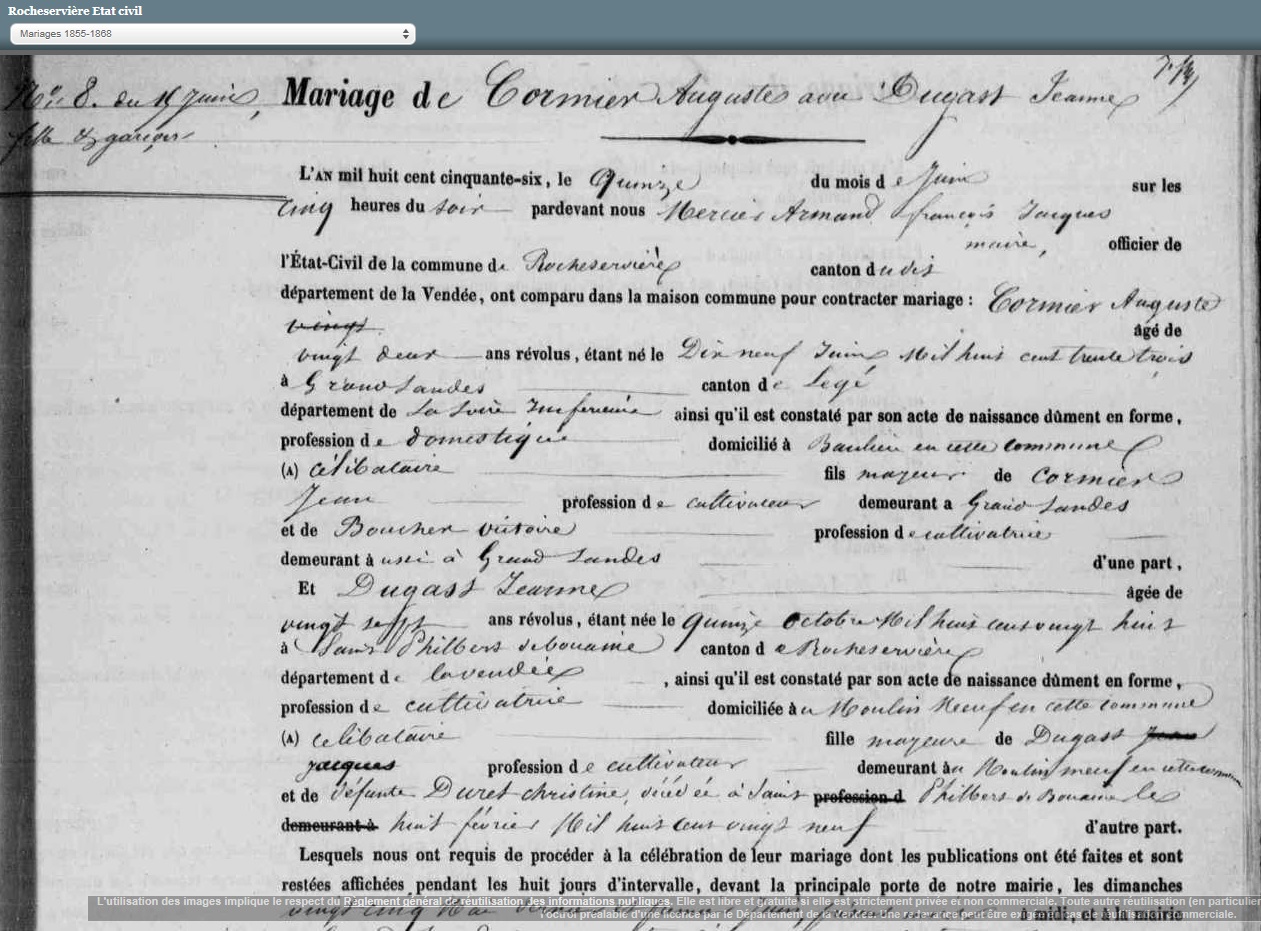 Rocheservière Etat civil
Mariages 1855-1868
N° 8. du 15 Juin,
fille & garçon
Mariage de Cormier Auguste avec Dugast Jeanne
L'AN mil huit cent cinquante-six, le Quinze du mois de Juin sur les
cinq heures du soir pardevant nous Mercier Armand françois Jacques
maire, officier de
l'État-Civil de la commune de Rocheservière canton du dit
département de la Vendée, ont comparu dans la maison commune pour contracter mariage : Cormier Auguste
vingt âgé de
vingt deux ans révolus, étant né le Dix neuf Juin Mil huit cent trente trois
à Grand Landes canton de Legé
département de La Loire Inferieure ainsi qu'il est constaté par son acte de naissance dûment en forme,
profession de domestique domicilié à Baulieu en cette commune
(A) célibataire fils majeur de Cormier
Jean profession de cultivateur demeurant a Grand Landes
et de Boucher victoire profession de cultivatrice
demeurant à aussi à Grand Landes d'une part,
Et Dugast Jeanne âgée de
vingt sept ans révolus, étant née le quinze octobre Mil huit cent vingt huit
à Saint Philbert de bouaine canton de Rocheservière
département de la vendée, ainsi qu'il est constaté par son acte de naissance dûment en forme,
profession de cultivatrice domiciliée à au Moulin Neuf en cette commune
(A) celibataire fille majeure de Dugast Jean
jacques profession de cultivateur demeurant à au Moulin neuf en cette commune
et de défunte Duret christine, décédée à Saint profession d Philbert de Bouaine le
demeurant à huit février Mil huit cent vingt neuf d'autre part.
Lesquels nous ont requis de procéder à la célébration de leur mariage dont les publications ont été faites et sont
restées affichées pendant les huit jours d'intervalle, devant la principale porte de notre mairie, les dimanches
L'utilisation des images implique le respect du Règlement général de réutilisation des informations publiques. Elle est libre et gratuite si elle est strictement privée et non commerciale. Toute autre réutilisation (en particulier
l'octroi préalable d'une licence par le Département de la Vendée. Une redevance peut être exigée en cas de réutilisation commerciale.
vingt cinq Mai à midi, et à la mairie